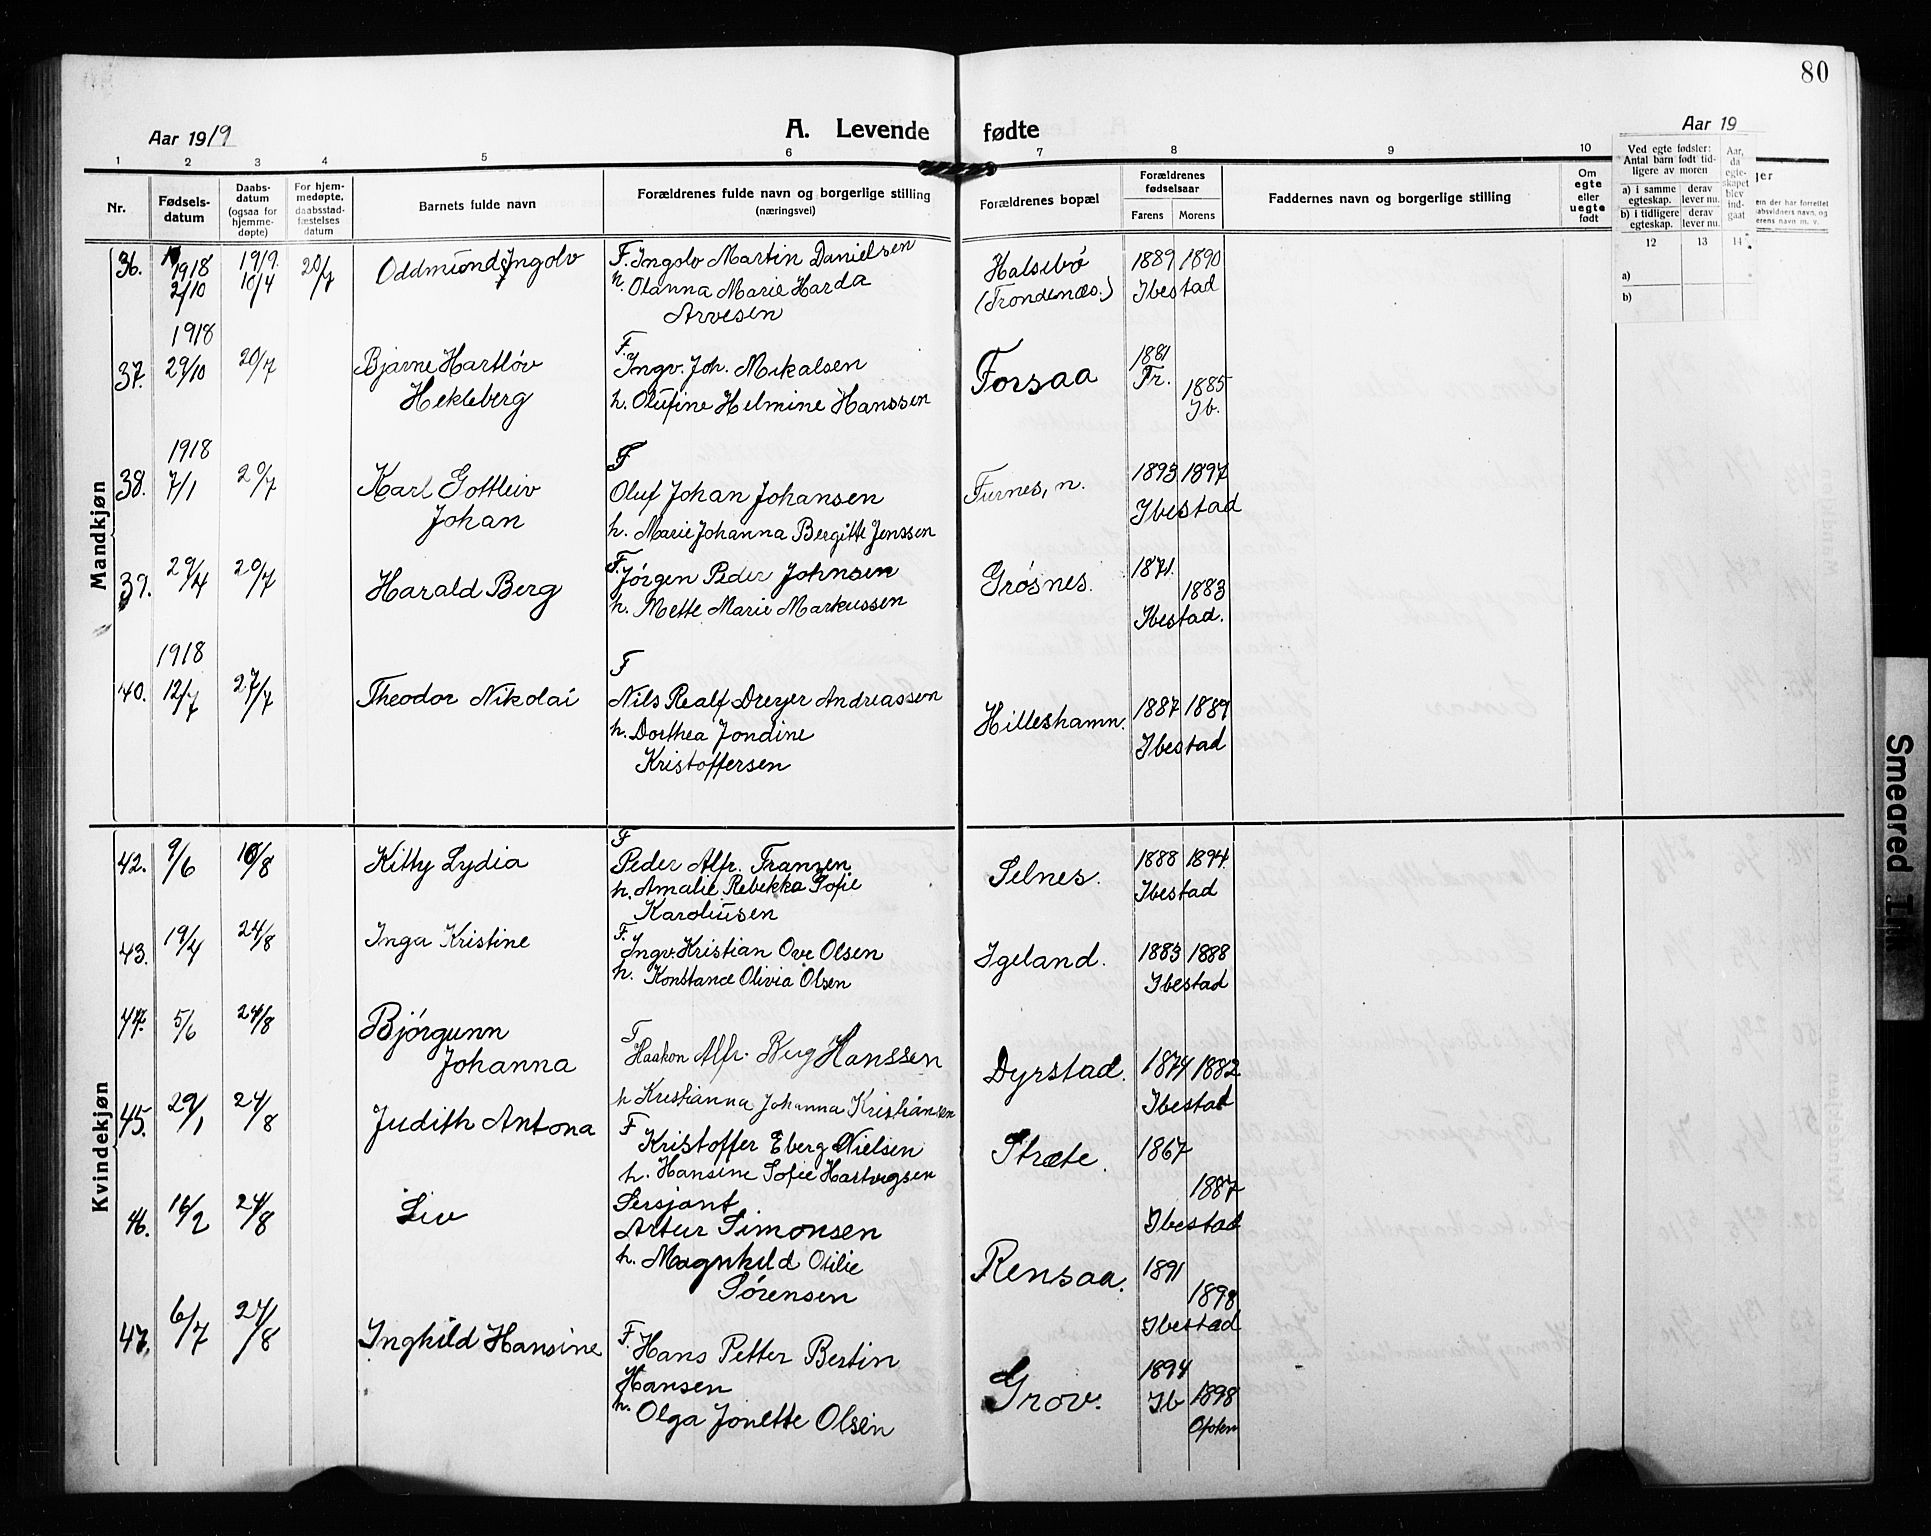 80
Aar 1919
A. Levende fødte
Aar 19
1 2 3 4 5 6 7 8 9 10
Nr.
Fødsels-
datum
Daabs-
datum
(ogsaa for
hjemme-
døpte)
For hjem-
medøpte,
daabsstad-
fæstelses
datum
Barnets fulde navn
Forældrenes fulde navn og borgerlige stilling
(næringsvei)
Forældrenes bopæl
Forældrenes
fødselsaar
Farens Morens
Faddernes navn og borgerlige stilling
Om
egte
eller
uegte
født
Ved egte fødsler:
Antal barn født tid-
ligere av moren
a) i samme
egteskap.
derav
lever nu.
b) i tidligere
egteskap.
derav
lever nu.
Aar,
da
egte-
skapet
blev
ind-
gaat
12 13 14
a)
b)
Mandkjøn
36. 1918 2/10 1919 10/4 20/7 Oddmund Ingolv
F. Ingolv Martin Danielsen
h. Olanna Marie Harda
Arvesen
Halsebø
(Trondenæs.)
1889 1890
Ibestad
37. 1918 29/10 20/7 Bjarne Hartløv
Hekleberg
F.
Ingv. Joh. Mikalsen
h. Olufine Helmine Hanssen
Forsaa
1881
Tr.
1885
Ib.
38. 1918 7/1 20/7 Karl Gottleiv
Johan
F
Oluf Johan Johansen
h. Marie Johanna Bergitte Jenssen
Furnes, n.
1893 1897
Ibestad
39. 29/4 20/7 Harald Berg
F. Jørgen Peder Johnsen
h. Mette Marie Markussen
Grøsnes.
1871.
1883
Ibestad.
40. 1918 12/7 27/7 Theodor Nikolai
F
Nils Realf Dreyer Andreassen
h. Dorthea Jondine
Kristoffersen
Hilleshamn.
1887 1889
Ibestad
Kvindekjøn
42. 9/6 10/8 Kitty Lydia
F
Peder Alfr. Fransen
h. Amalie Rebekka Sofie
Karoliusen
Selnes.
1888 1894.
Ibestad
43. 19/4 24/8 Inga Kristine
F.
Ingv. Kristian Ove Olsen
h. Konstance Olivia Olsen
Igeland.
1883 1888
Ibestad
44. 5/6 24/8 Bjørgunn
Johanna
F
Haakon Alfr. Berg Hanssen
h Kristianna Johanna Kristiansen
Dyrstad.
1874 1882
Ibestad
45. 29/1 24/8 Judith Antona
F
Kristoffer Eberg Nielsen
h. Hansine Sofie Hartvigsen
Stræte.
1867
1887
Ibestad
46. 16/2 24/8 Liv
Sersjant
Artur Simonsen
h. Magnhild Otilie
Sørensen
Rensaa.
1891
1898
Ibestad
47. 6/7 24/8 Inghild Hansine
F. Hans Petter Bertin
Hansen
h. Olga Jonette Olsen
Grov.
1894
Ib
1898
Ofoten
Smeared